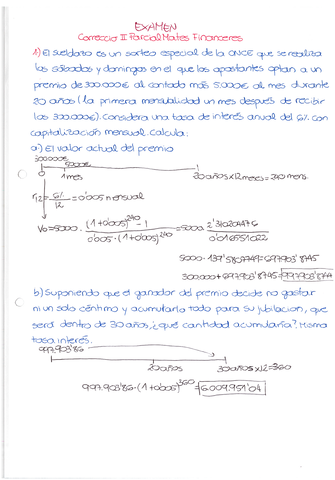 EXAMEN
Correccio II Parcial Mates Financeres
1) El sueldazo es un sorteo especial de la ONCE que se realiza
los sábados y domingos en el que los apostantes optan a un
premio de 300.000€ al contado más 5.000€ al mes durante
20 años (la primera mensualidad un mes después de recibir
los 300.000€). Considera una tasa de interés anual del 6% con
capitalización mensual. Calcula:
a) El valor actual del premio
300.000€
5000€
0 1mes 20 años x12 meses = 240 mens.
r12 = 6%/12 = 0'005 mensual
V0 = 5000 · (1+0'005)^240 - 1 / 0'005 · (1+0'005)^240 = 5000 · 2'310204476 / 0'016551022
5000 · 139'5807749 = 697903'8745
300.000 + 697903'8745 = 997903'8745
b) Suponiendo que el ganador del premio decide no gastar
ni un solo céntimo y acumularlo todo para su jubilación, que
será dentro de 30 años, ¿qué cantidad acumularía? Misma
tasa interés.
997.903'86
20años 30años x12 = 360
997.903'86 · (1+0'005)^360 = 6.009.951'04